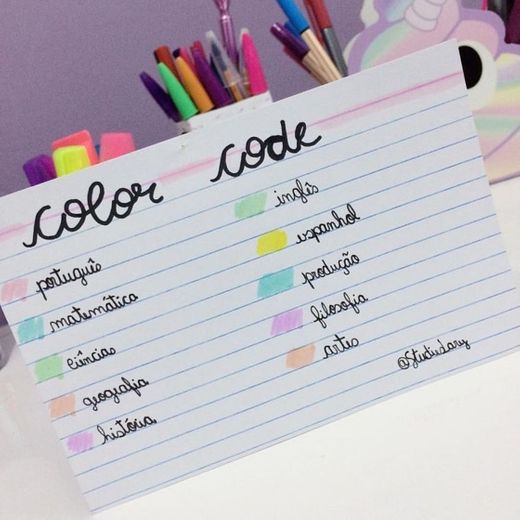 color code
português
matemática
ciências
geografia
história
inglês
espanhol
produção
filosofia
artes
@Studiesdary